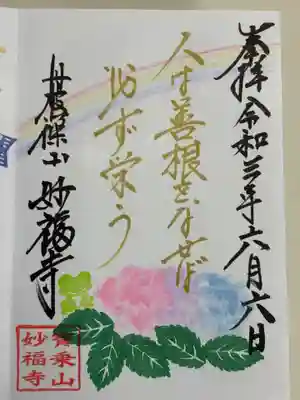 奉拝 令和三年六月六日
人は善根をなせば
必ず栄う
妙福寺
乗山
妙福寺